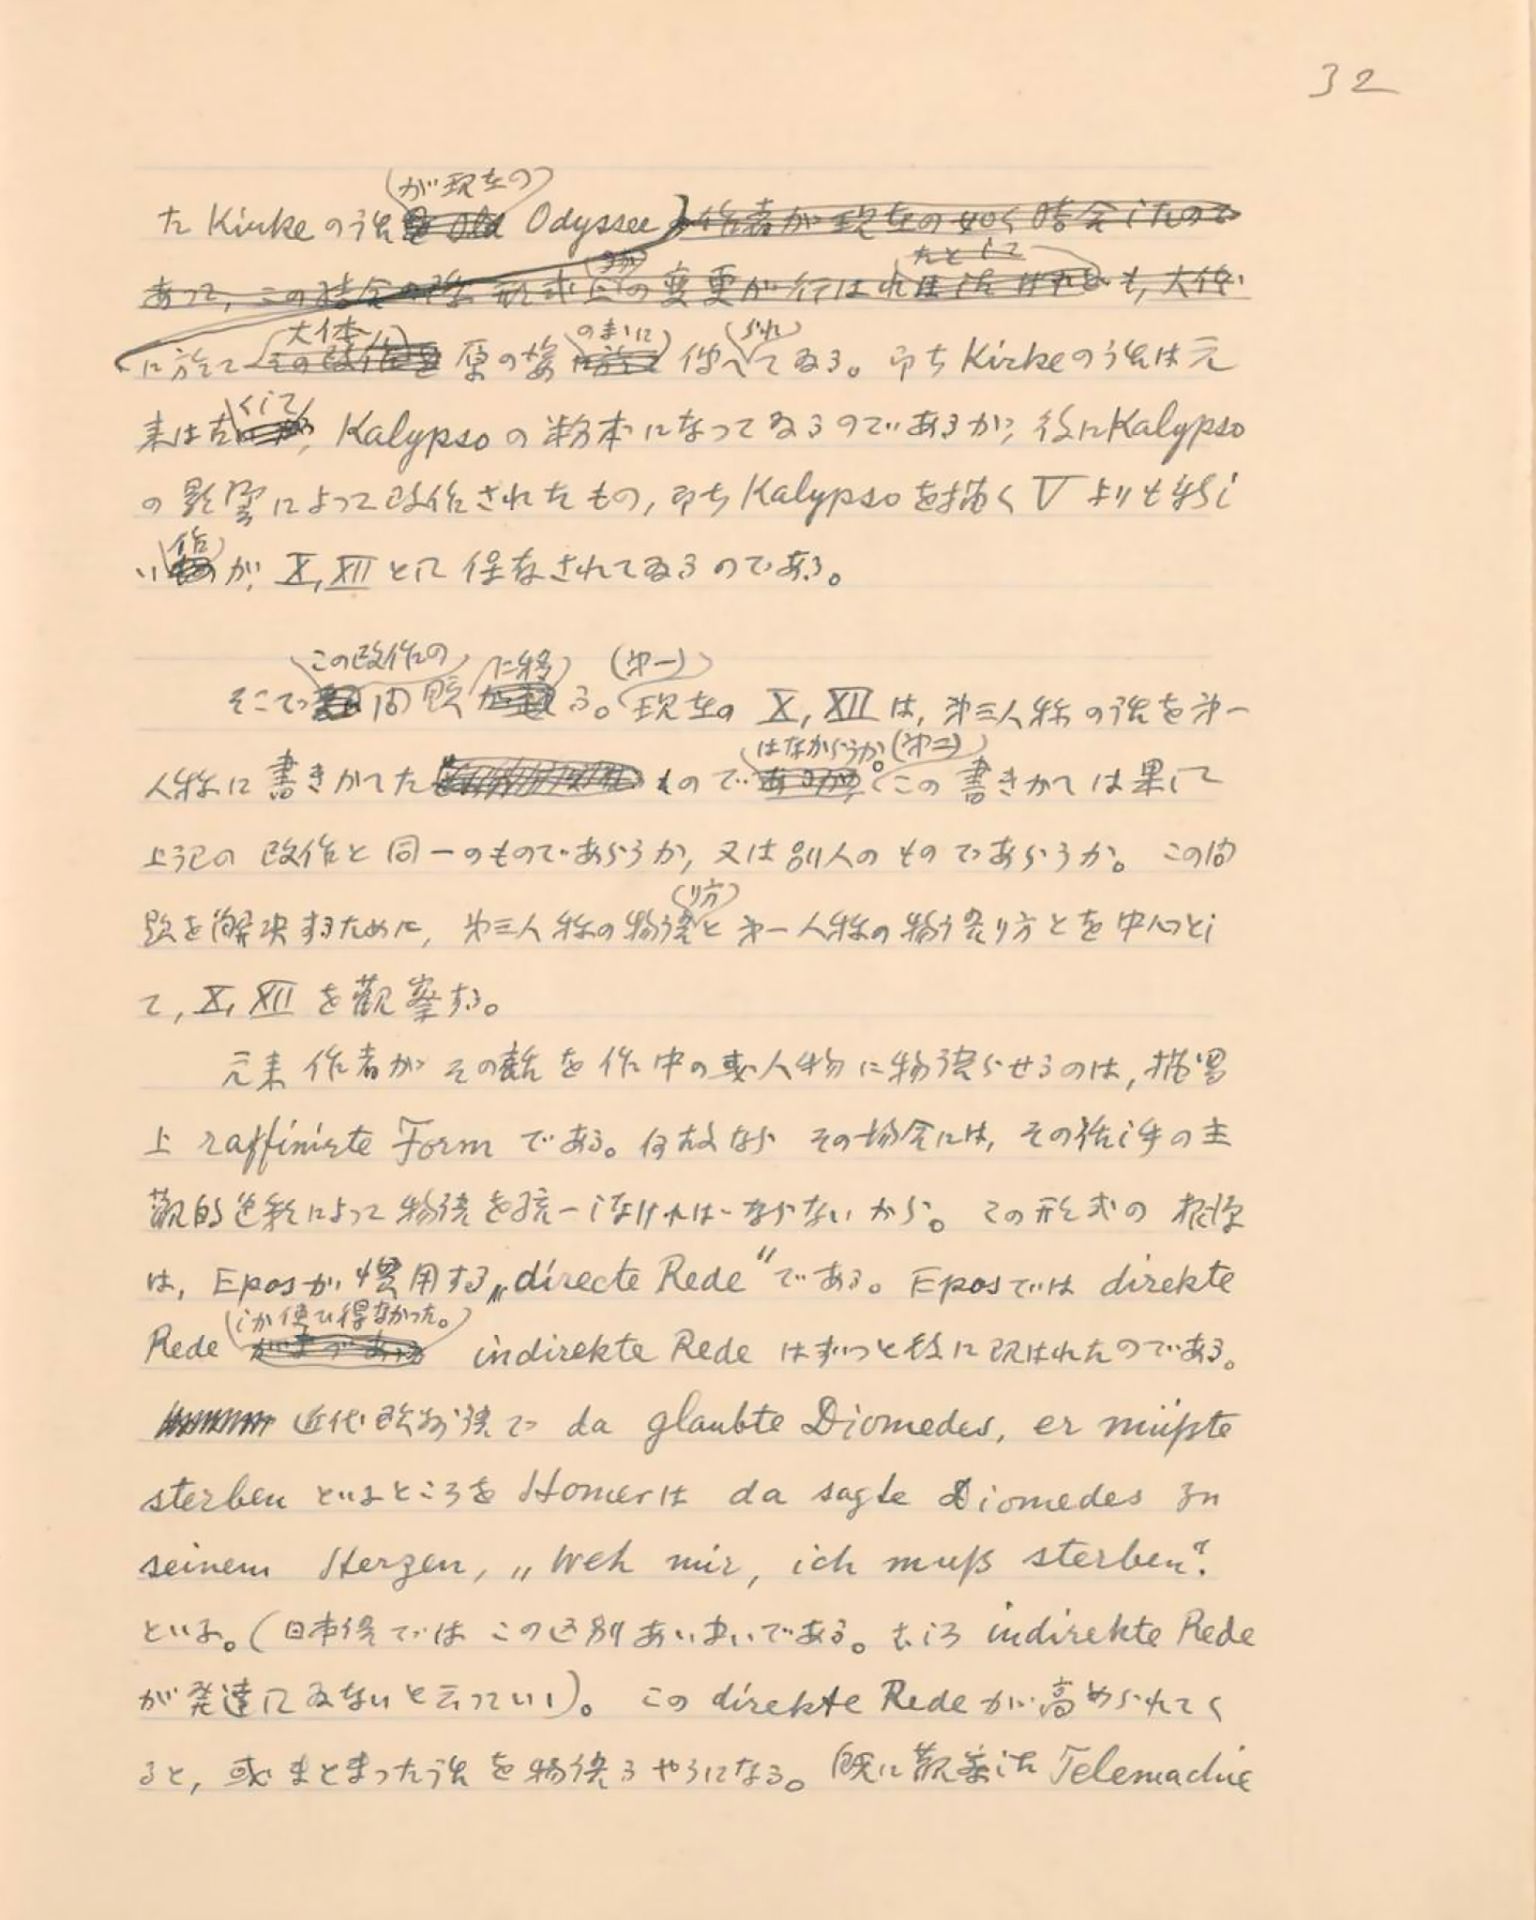 32
た Kirke の話が現在の Odyssee
に於て大体原の姿のまゝに伝へられてゐる。即ち Kirke の話は元
来は古くして, Kalypso の粉本になってゐるのであるが, 後に Kalypso
の影響によって改作されたもの, 即ち Kalypso を描く V よりも新し
い作が, X, XII として保存されてゐるのである。
そこでこの改作の問題に移る。(第一) 現在の X, XII は, 第三人称の話を第一
人称に書きかへたものではなからうか。(第二) この書きかへは果して
上記の改作と同一のものであらうか, 又は別人のものであらうか。この問
題を解決するために, 第三人称の物語り方と第一人称の物語り方とを中心とし
て, X, XII を観察する。
元来作者がその話を作中の或人物に物語らせるのは, 描写
上 raffinirte Form である。何故なら その場合には, その話し手の主
観的色彩によって物語を統一しなければならないから。この形式の根源
は, Epos が慣用する „directe Rede“ である。Epos では direkte
Rede しか使ひ得なかった。 indirekte Rede はずっと後に現はれたのである。
近代欧物語で da glaubte Diomedes, er müßte
sterben といふところを Homer は da sagte Diomedes zu
seinem Herzen, „Weh mir, ich muß sterben“.
といふ。(日本語ではこの区別あいまいである。むしろ indirekte Rede
が発達してゐないと云っていい)。この direkte Rede が高められてく
ると, 或まとまった話を物語るやうになる。既に観察した Telemachie